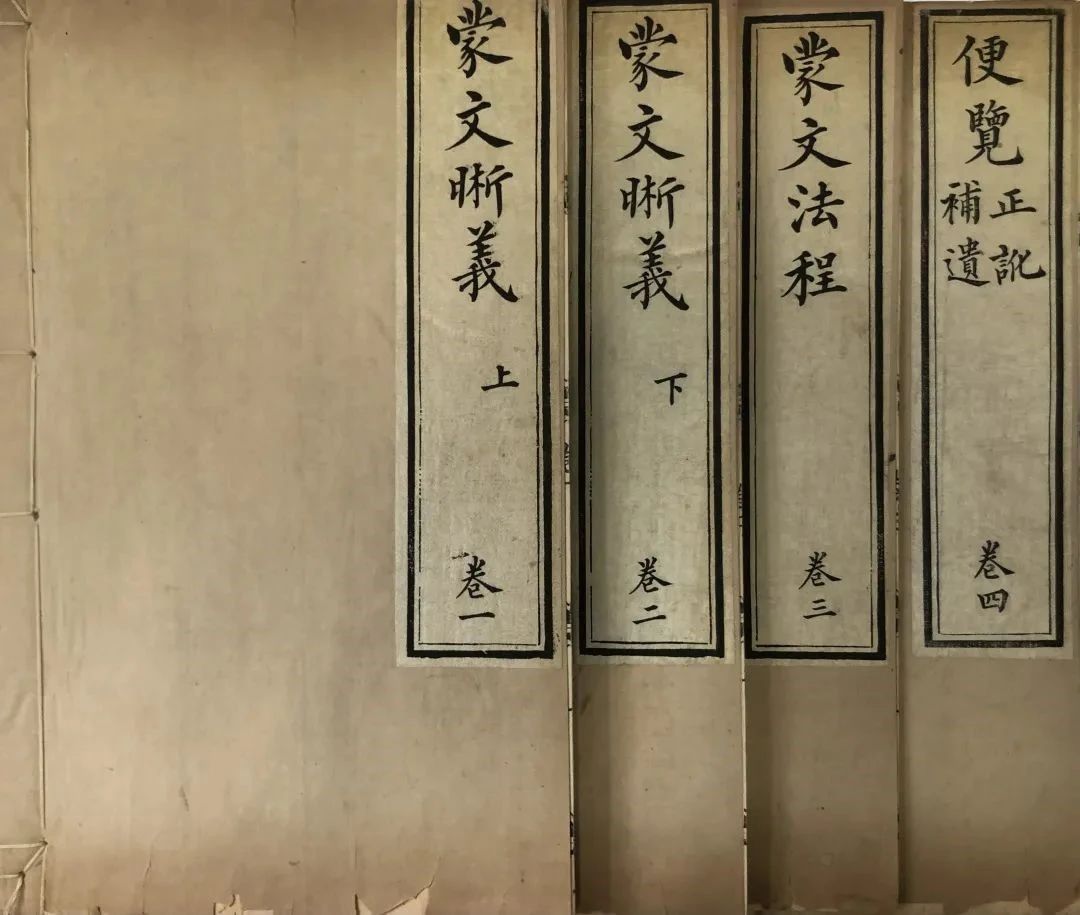 蒙文晰義
上
卷一
蒙文晰義
下
卷二
蒙文法程
卷三
便覽
正訛
補遺
卷四